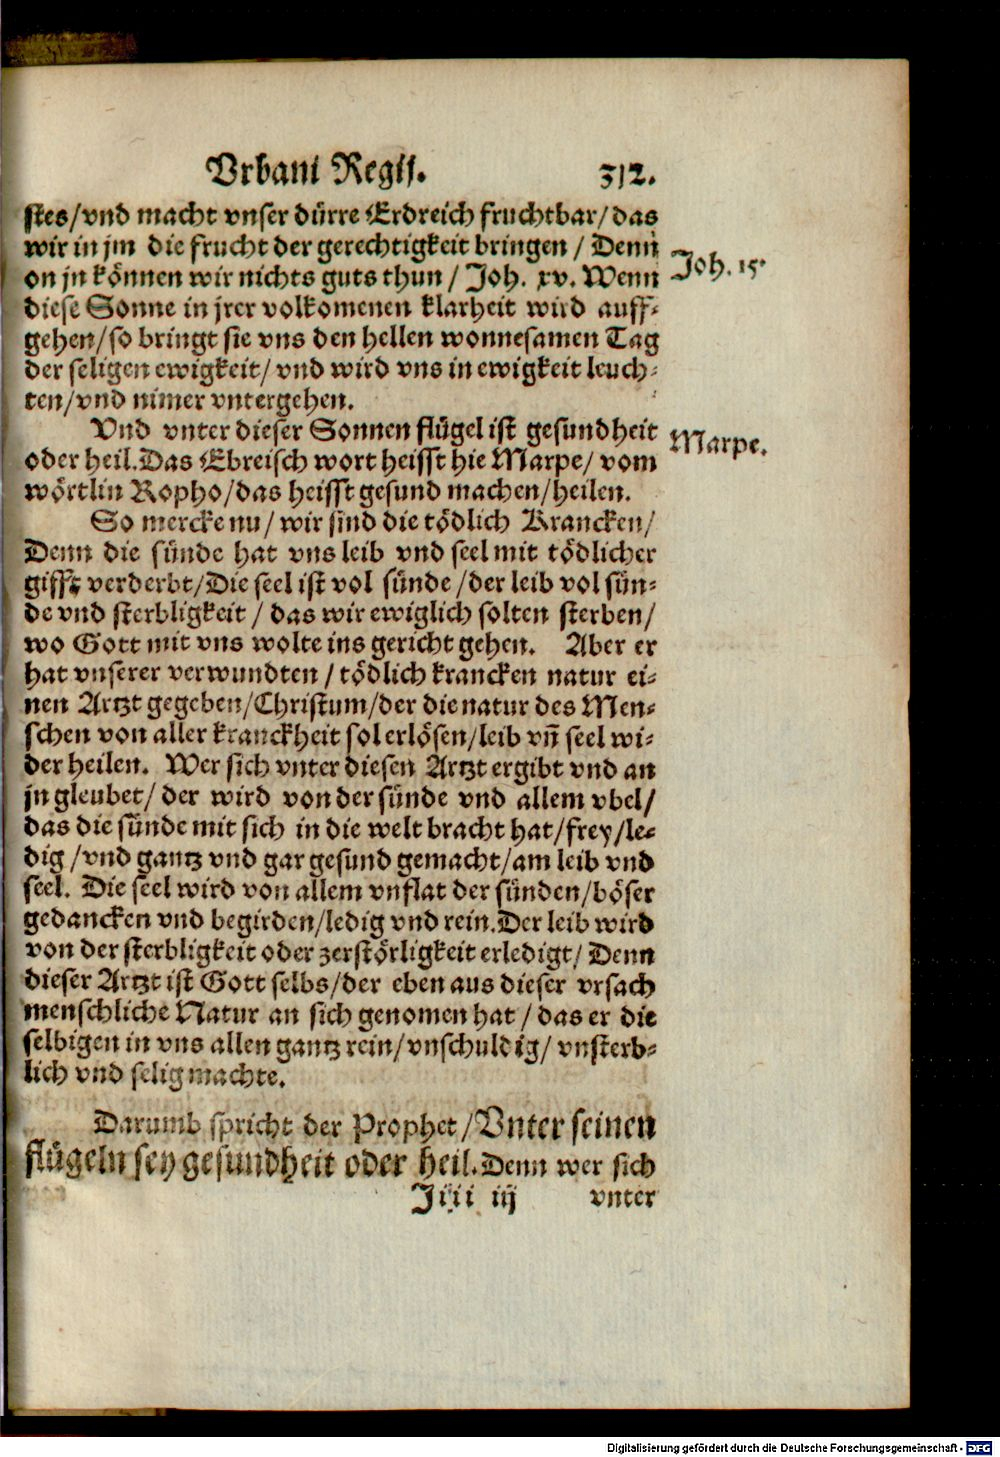 Vrbani Regij. 312.
stes/vnd macht vnser dürre Erdreich fruchtbar/das
wir in jm die frucht der gerechtigkeit bringen / Denn
on jn können wir nichts guts thun / Joh. xv. Wenn
Joh. 15.
diese Sonne in jrer volkomenen klarheit wird auff-
gehen/so bringt sie vns den hellen wonnesamen Tag
der seligen ewigkeit/ vnd wird vns in ewigkeit leuch-
ten/vnd nimer vntergehen.
Vnd vnter dieser Sonnen flügel ist gesundheit
Marpe.
oder heil. Das Ebreisch wort heisst hie Marpe/ vom
wörtlin Ropho/das heisst gesund machen/heilen.
So mercke nu/ wir sind die tödlich Krancken/
Denn die sünde hat vns leib vnd seel mit tödlicher
gifft verderbt/Die seel ist vol sünde /der leib vol sün-
de vnd sterbligkeit / das wir ewiglich solten sterben/
wo Gott mit vns wolte ins gericht gehen. Aber er
hat vnserer verwundten / tödlich krancken natur ei-
nen Artzt gegeben/Christum/der die natur des Men-
schen von aller kranckheit sol erlösen/leib vñ seel wi-
der heilen. Wer sich vnter diesen Artzt ergibt vnd an
jn gleubet/ der wird von der sünde vnd allem vbel/
das die sünde mit sich in die welt bracht hat/frey/le-
dig /vnd gantz vnd gar gesund gemacht/am leib vnd
seel. Die seel wird von allem vnflat der sünden/böser
gedancken vnd begirden/ledig vnd rein. Der leib wird
von der sterbligkeit oder zerstörligkeit erledigt/ Denn
dieser Artzt ist Gott selbs/der eben aus dieser vrsach
menschliche Natur an sich genomen hat / das er die
selbigen in vns allen gantz rein/vnschuldig/ vnsterb-
lich vnd selig machte.
Darumb spricht der Prophet/Vnter seinen
flügeln sey gesundheit oder heil. Denn wer sich
Jiii iij vnter
Digitalisierung gefördert durch die Deutsche Forschungsgemeinschaft - DFG